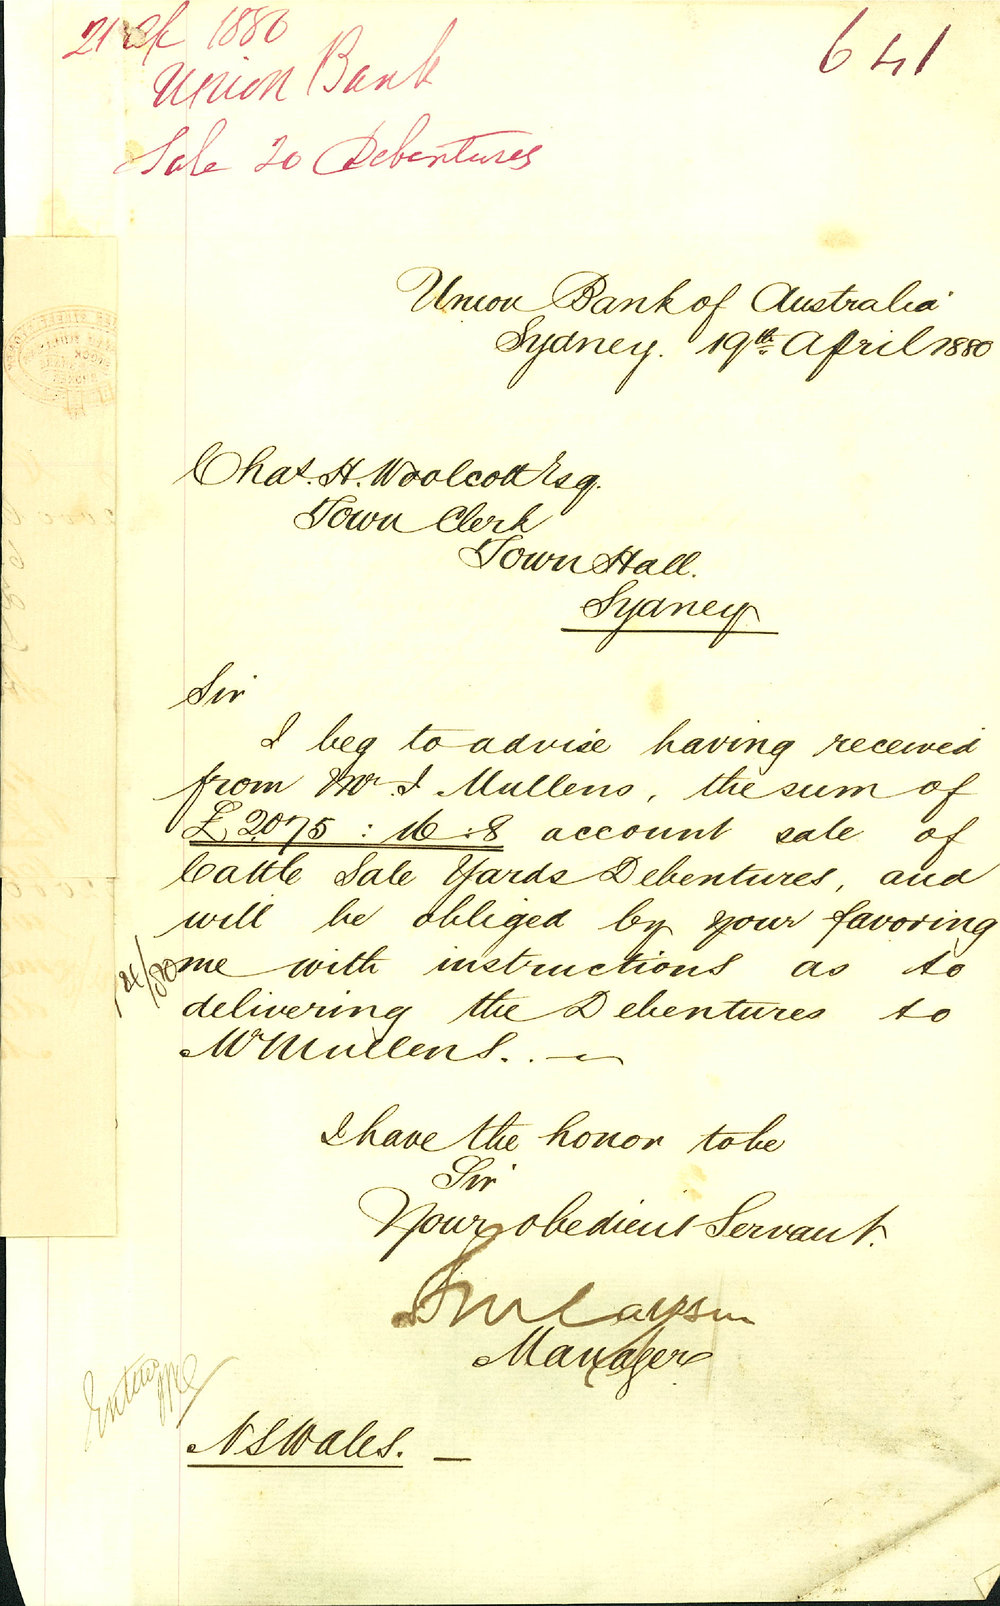 641
21 1880
Union Bank
Sale 20 Debentures
Union Bank of Australia
Sydney. 19th April 1880
Chas. H. Woolcott Esq.
Town Clerk
Town Hall.
Sydney
Sir
I beg to advise having received
from Mr. J. Mullens, the sum of
£2075 : 16 : 8 account sale of
Cattle Sale Yards Debentures, and
will be obliged by your favoring
me with instructions as to
delivering the Debentures to
Mr Mullens. . —
I have the honor to be
Sir
Your obedient Servant.
Manager
N S Wales. —